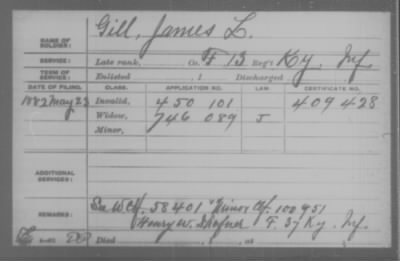 NAME OF SOLDIER: Gill, James L.
SERVICE: Late rank, Co. F 13 Reg't Ky. Inf.
TERM OF SERVICE: Enlisted , 1 Discharged
DATE OF FILING. CLASS. APPLICATION NO. LAW. CERTIFICATE NO.
1882 May 23 Invalid, 450 101 409 428
Widow, 746 089 J
Minor,
ADDITIONAL SERVICES:
REMARKS: See W Cf. 58401 "Minor Cf. 100951
Henry W. F. 37 Ky. Inf.
Died , at